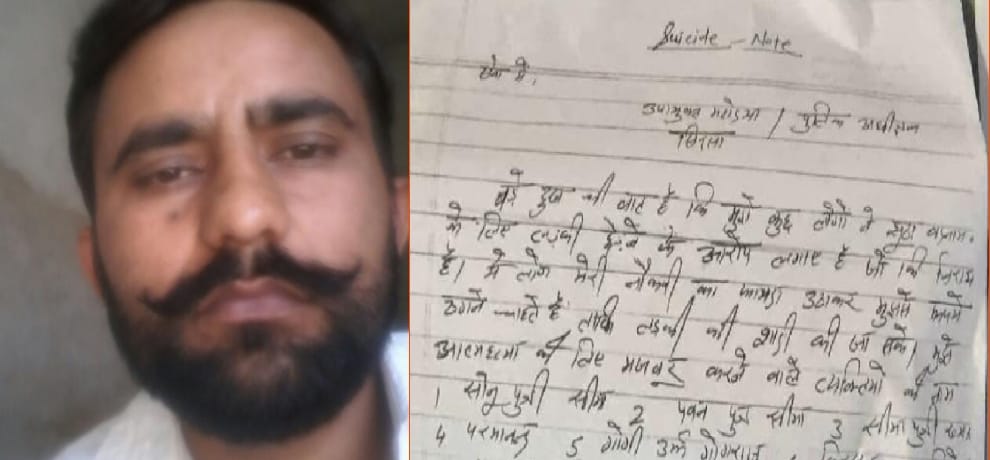 Suicide - Note
सेवा में,
उपायुक्त महोदया / पुलिस अधीक्षक
सिरसा
बड़े दुख की बात है कि मुझे कुछ लोगों ने झूठा बदनाम
के लिए लड़की के आरोप लगाए है जो कि निराधार
है। ये लोग मेरी नौकरी का फायदा उठाकर मुझसे रूपये
ठगने चाहते है ताकि लड़की की शादी की जा सके। मुझे
आत्महत्या के लिए मजबूर करने वाले व्यक्तियों के नाम
1 सोनू पुत्री सीमा 2 पवन पुत्र सीमा 3 सीमा पुत्री
4 परमानन्द 5 गोगी उर्फ